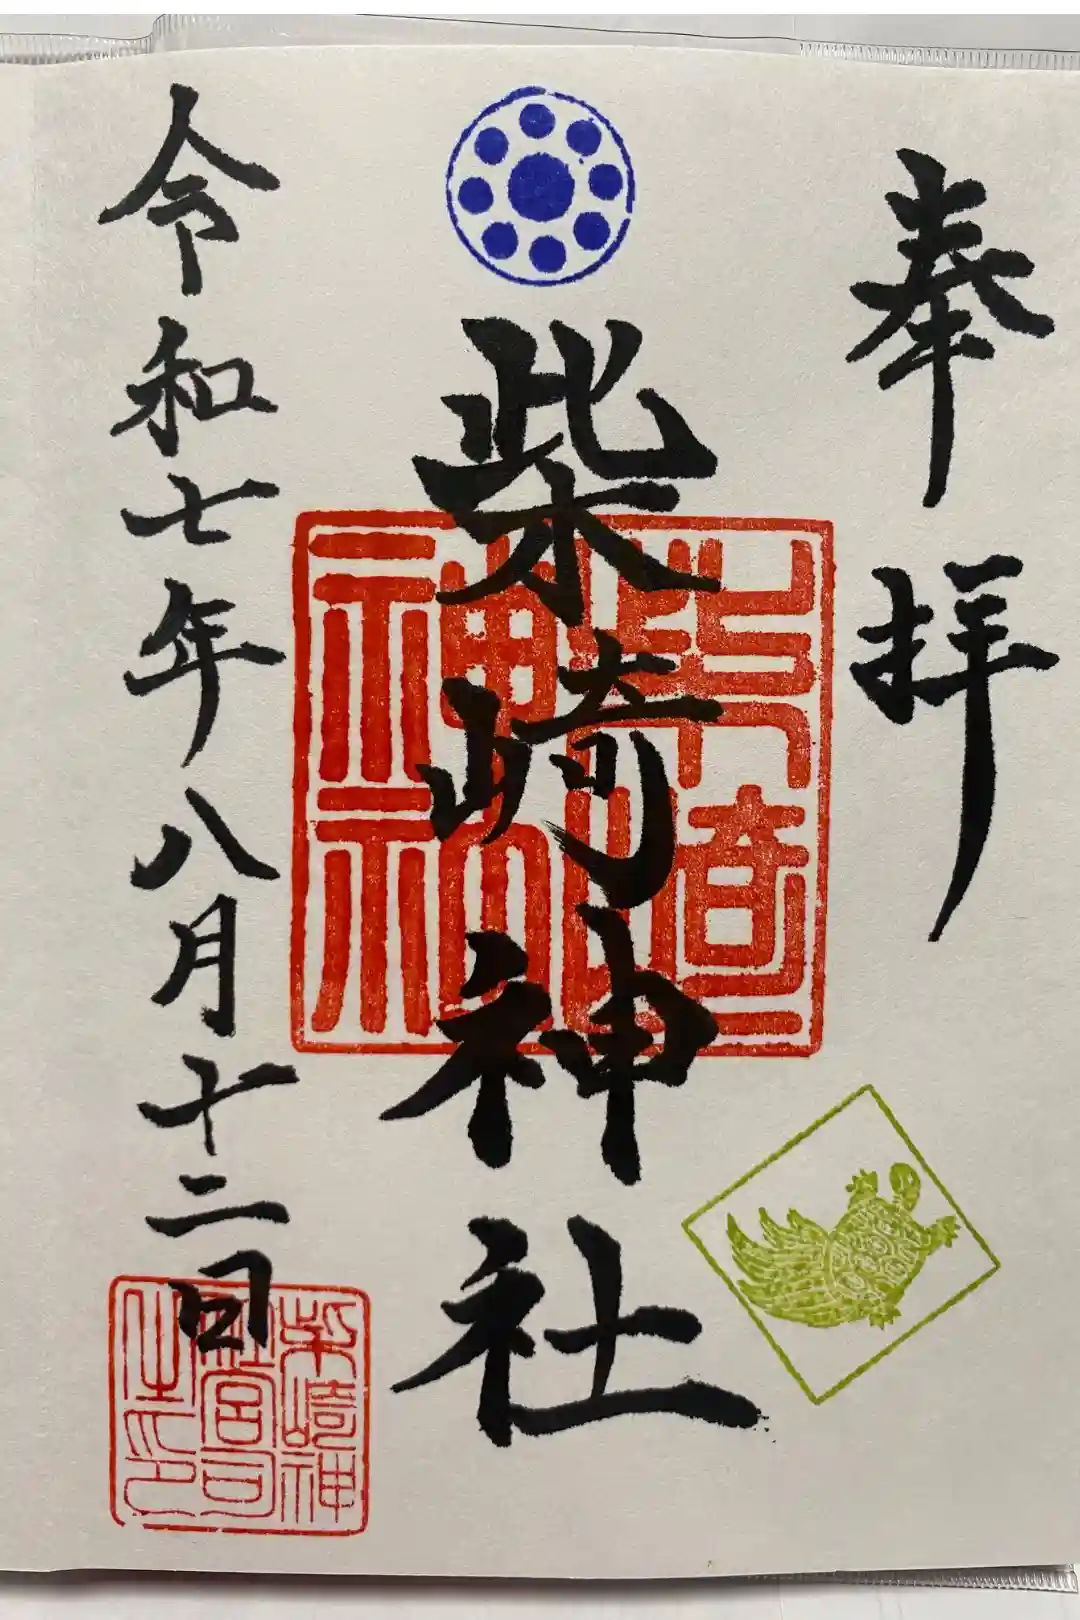 奉拝
柴崎神社
令和七年八月十二日
柴崎神
社宮司
之印